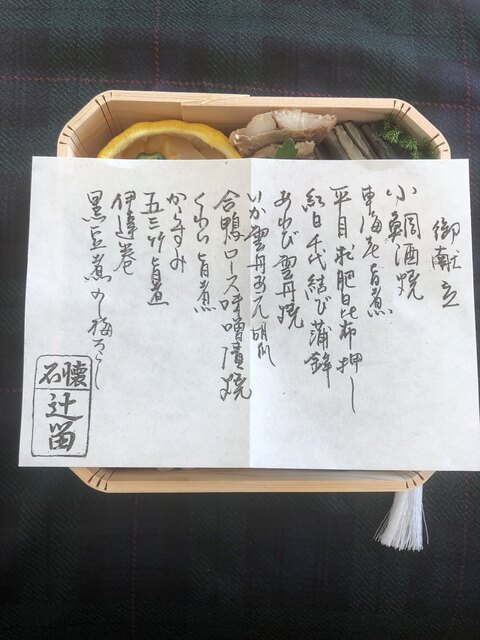 御献立
小鯛酒焼
車海老旨煮
平目求肥昆布押し
紅白千代結び蒲鉾
あわび雲丹焼
いか雲丹あえ 胡瓜
合鴨ロース味噌漬焼
くわい旨煮
からすみ
五三竹旨煮
伊達巻
黒豆煮 のし梅
懐石
辻留